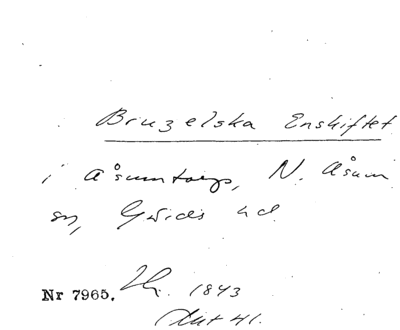 Bruzelska Enskiftet
i Åsumtorp, N. Åsum
sn, Gärds hd.
Nr 7965. 1843
Avt 41.